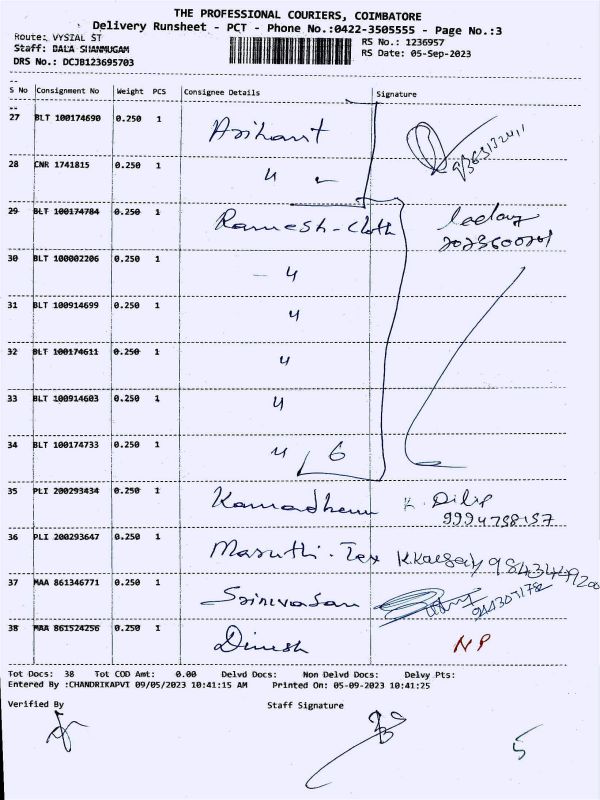 THE PROFESSIONAL COURIERS, COIMBATORE
Delivery Runsheet - PCT - Phone No.:0422-3505555 - Page No.:3
Route: VYSIAL ST RS No.: 1236957
Staff: BALA SHANMUGAM RS Date: 05-Sep-2023
DRS No.: DCJB123695703
S No Consignment No Weight PCS Consignee Details Signature
27 BLT 100174690 0.250 1 Arihant
28 CNR 1741815 0.250 1 〃
29 BLT 100174784 0.250 1 Ramesh-Cloth
30 BLT 100002206 0.250 1 - 〃
31 BLT 100914699 0.250 1 〃
32 BLT 100174611 0.250 1 〃
33 BLT 100914603 0.250 1 〃
34 BLT 100174733 0.250 1 〃 6
35 PLI 200293434 0.250 1 Kamadhenu K. Dilip
9994798157
36 PLI 200293647 0.250 1 Maruthi-Tex
37 MAA 861346771 0.250 1 Srinivasan
38 MAA 861524256 0.250 1 Dinesh NP
Tot Docs: 38 Tot COD Amt: 0.00 Delvd Docs: Non Delvd Docs: Delvy Pts:
Entered By :CHANDRIKAPVI 09/05/2023 10:41:15 AM Printed On: 05-09-2023 10:41:25
Verified By Staff Signature
5